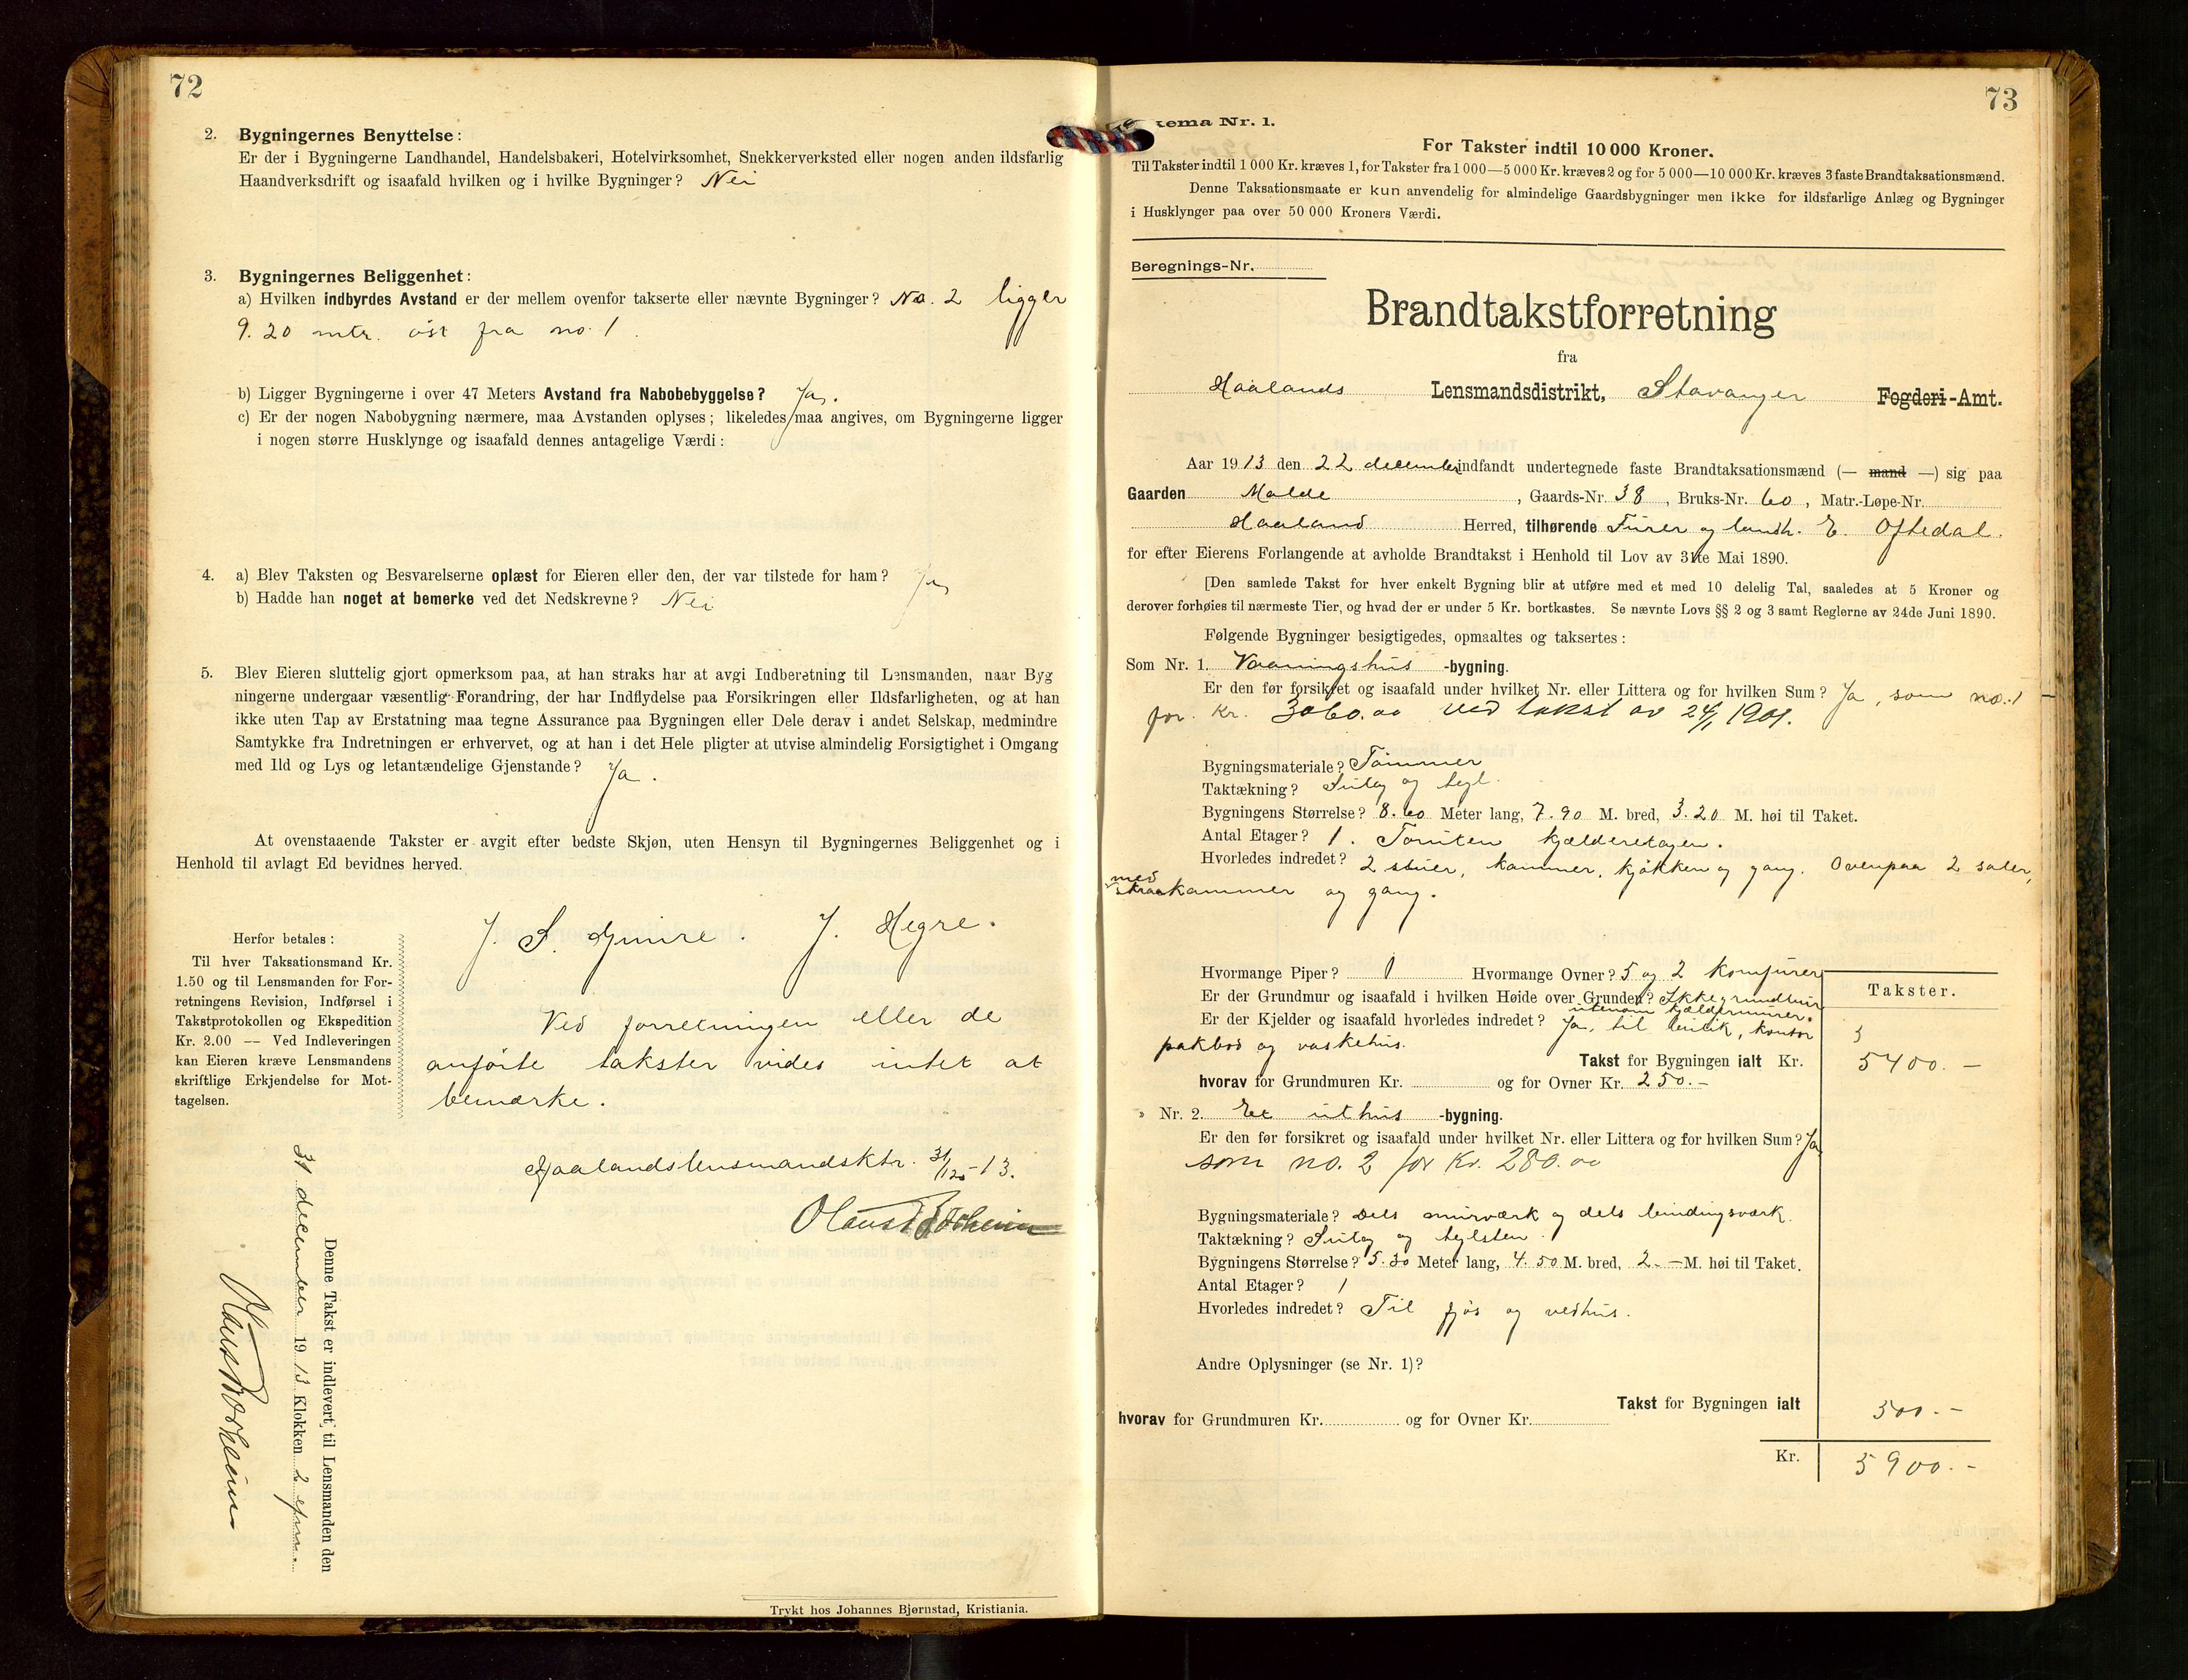 72
2. Bygningernes Benyttelse:
Er der i Bygningerne Landhandel, Handelsbakeri, Hotelvirksomhet, Snekkerverksted eller nogen anden ildsfarlig
Haandverksdrift og isaafald hvilken og i hvilke Bygninger? Nei
3. Bygningernes Beliggenhet:
a) Hvilken indbyrdes Avstand er der mellem ovenfor takserte eller nævnte Bygninger? No. 2 ligger
9.20 mtr. öst fra no. 1.
b) Ligger Bygningerne i over 47 Meters Avstand fra Nabobebyggelse? Ja.
c) Er der nogen Nabobygning nærmere, maa Avstanden oplyses; likeledes maa angives, om Bygningerne ligger
i nogen større Husklynge og isaafald dennes antagelige Værdi:
4. a) Blev Taksten og Besvarelserne oplæst for Eieren eller den, der var tilstede for ham? Ja
b) Hadde han noget at bemerke ved det Nedskrevne? Nei
5. Blev Eieren sluttelig gjort opmerksom paa, at han straks har at avgi Indberetning til Lensmanden, naar Byg
ningerne undergaar væsentlig Forandring, der har Indflydelse paa Forsikringen eller Ildsfarligheten, og at han
ikke uten Tap av Erstatning maa tegne Assurance paa Bygningen eller Dele derav i andet Selskap, medmindre
Samtykke fra Indretningen er erhvervet, og at han i det Hele pligter at utvise almindelig Forsigtighet i Omgang
med Ild og Lys og letantændelige Gjenstande? Ja.
At ovenstaaende Takster er avgit efter bedste Skjøn, uten Hensyn til Bygningernes Beliggenhet og i
Henhold til avlagt Ed bevidnes herved.
J. S. Gimre. J. Hegre.
Herfor betales:
Til hver Taksationsmand Kr.
1.50 og til Lensmanden for For-
retningens Revision, Indførsel i
Takstprotokollen og Ekspedition
Kr. 2.00 — Ved Indleveringen
kan Eieren kræve Lensmandens
skriftlige Erkjendelse for Mot-
tagelsen.
Ved forretningen eller de
anförte takster vides intet at
bemærke.
Haalands lensmandsktr. 31/12-13.
Denne Takst er indlevert til Lensmanden den
31 december 1913 Klokken 2 efm.
Trykt hos Johannes Bjørnstad, Kristiania.
73
kema Nr. 1.
For Takster indtil 10 000 Kroner.
Til Takster indtil 1 000 Kr. kræves 1, for Takster fra 1 000—5 000 Kr. kræves 2 og for 5 000—10 000 Kr. kræves 3 faste Brandtaksationsmænd.
Denne Taksationsmaate er kun anvendelig for almindelige Gaardsbygninger men ikke for ildsfarlige Anlæg og Bygninger
i Husklynger paa over 50 000 Kroners Værdi.
Beregnings-Nr.
Brandtakstforretning
fra
Haalands Lensmandsdistrikt, Stavanger Fogderi-Amt.
Aar 1913 den 22 december indfandt undertegnede faste Brandtaksationsmænd (— mand —) sig paa
Gaarden Malde, Gaards-Nr. 38, Bruks-Nr. 60, Matr.-Løpe-Nr.
Haaland Herred, tilhørende Furer og landh. E. Oftedal.
for efter Eierens Forlangende at avholde Brandtakst i Henhold til Lov av 31te Mai 1890.
[Den samlede Takst for hver enkelt Bygning blir at utføre med et med 10 delelig Tal, saaledes at 5 Kroner og
derover forhøies til nærmeste Tier, og hvad der er under 5 Kr. bortkastes. Se nævnte Lovs §§ 2 og 3 samt Reglerne av 24de Juni 1890.
Følgende Bygninger besigtigedes, opmaaltes og taksertes:
Som Nr. 1. Vaaningshus -bygning.
Er den før forsikret og isaafald under hvilket Nr. eller Littera og for hvilken Sum? Ja, som no. 1
for Kr. 3060.00 ved takst av 24/1 1901.
Bygningsmateriale? Tömmer
Taktækning? Sutag og tegl.
Bygningens Størrelse? 8.60 Meter lang, 7.90 M. bred, 3.20 M. høi til Taket.
Antal Etager? 1. Foruten kjælderetagen.
Hvorledes indredet? 2 stuer, kammer, kjökken og gang. Ovenpaa 2 saler,
med skraakammer og gang.
Hvormange Piper? 1 Hvormange Ovner? 5 og 2 komfurer
Er der Grundmur og isaafald i hvilken Høide over Grunden? Ikke grundmur
utenom kjældermurer.
Er der Kjelder og isaafald hvorledes indredet? Ja, til butik, kontor
pakbod og vaskehus.
Takster.
Takst for Bygningen ialt Kr. 5400.-
hvorav for Grundmuren Kr. og for Ovner Kr. 250.-
» Nr. 2. Et uthus -bygning.
Er den før forsikret og isaafald under hvilket Nr. eller Littera og for hvilken Sum? Ja
som no. 2 for Kr. 280.00
Bygningsmateriale? Dels murværk og dels bindingsværk.
Taktækning? Sutag og teglsten.
Bygningens Størrelse? 5.30 Meter lang, 4.50 M. bred, 2.- M. høi til Taket.
Antal Etager? 1
Hvorledes indredet? Til fjös og vedhus.
Andre Oplysninger (se Nr. 1)?
Takst for Bygningen ialt 500.-
hvorav for Grundmuren Kr. og for Ovner Kr.
Kr. 5900.-